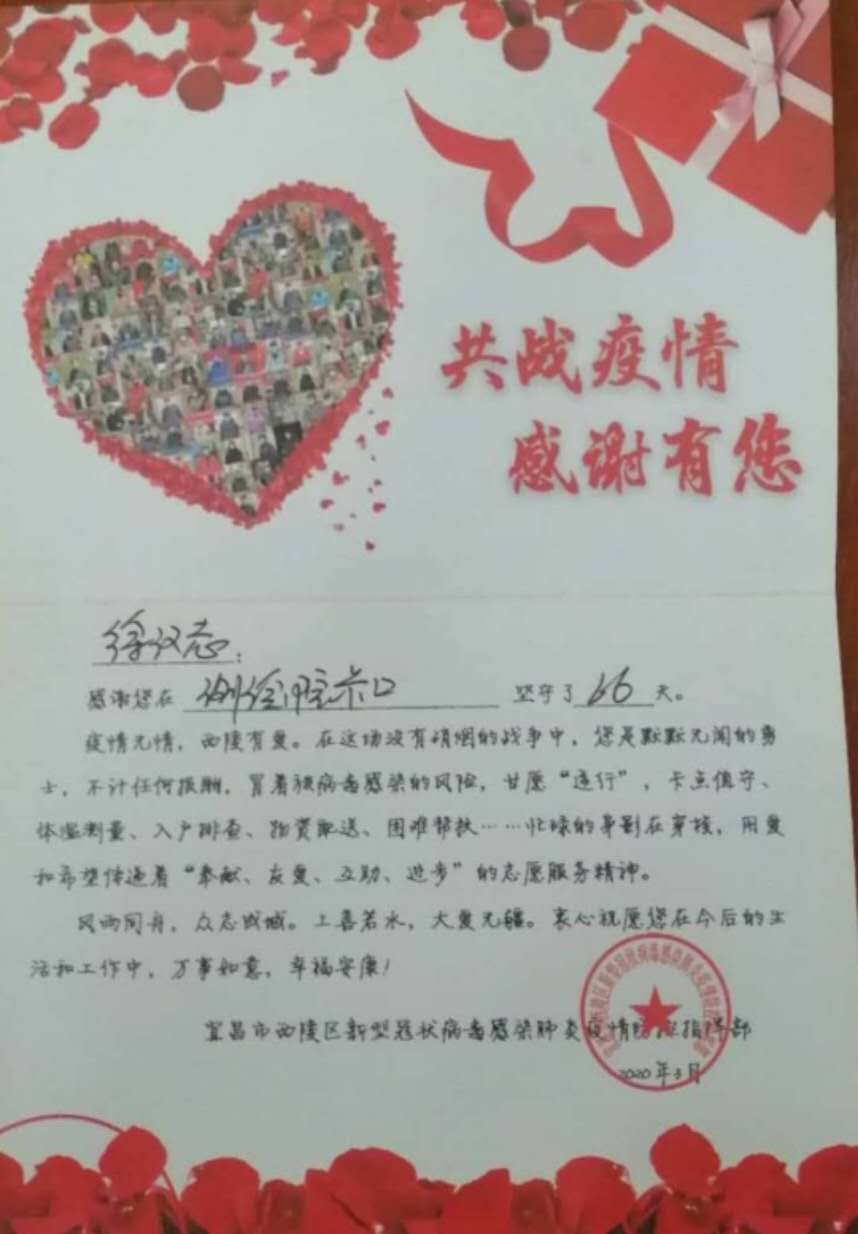 共战疫情
感谢有您
徐汉志：
感谢您在 坚守了 66 天。
疫情无情，西陵有爱。在这场没有硝烟的战争中，您是默默无闻的勇
士，不计任何报酬，冒着被病毒感染的风险，甘愿“逆行”，卡点值守、
体温测量、入户排查、物资配送、困难帮扶……忙碌的身影在穿梭，用爱
和希望传递着“奉献、友爱、互助、进步”的志愿服务精神。
风雨同舟，众志成城。上善若水，大爱无疆。衷心祝愿您在今后的生
活和工作中，万事如意，幸福安康！
宜昌市西陵区新型冠状病毒感染肺炎疫情防控指挥部
2020年3月